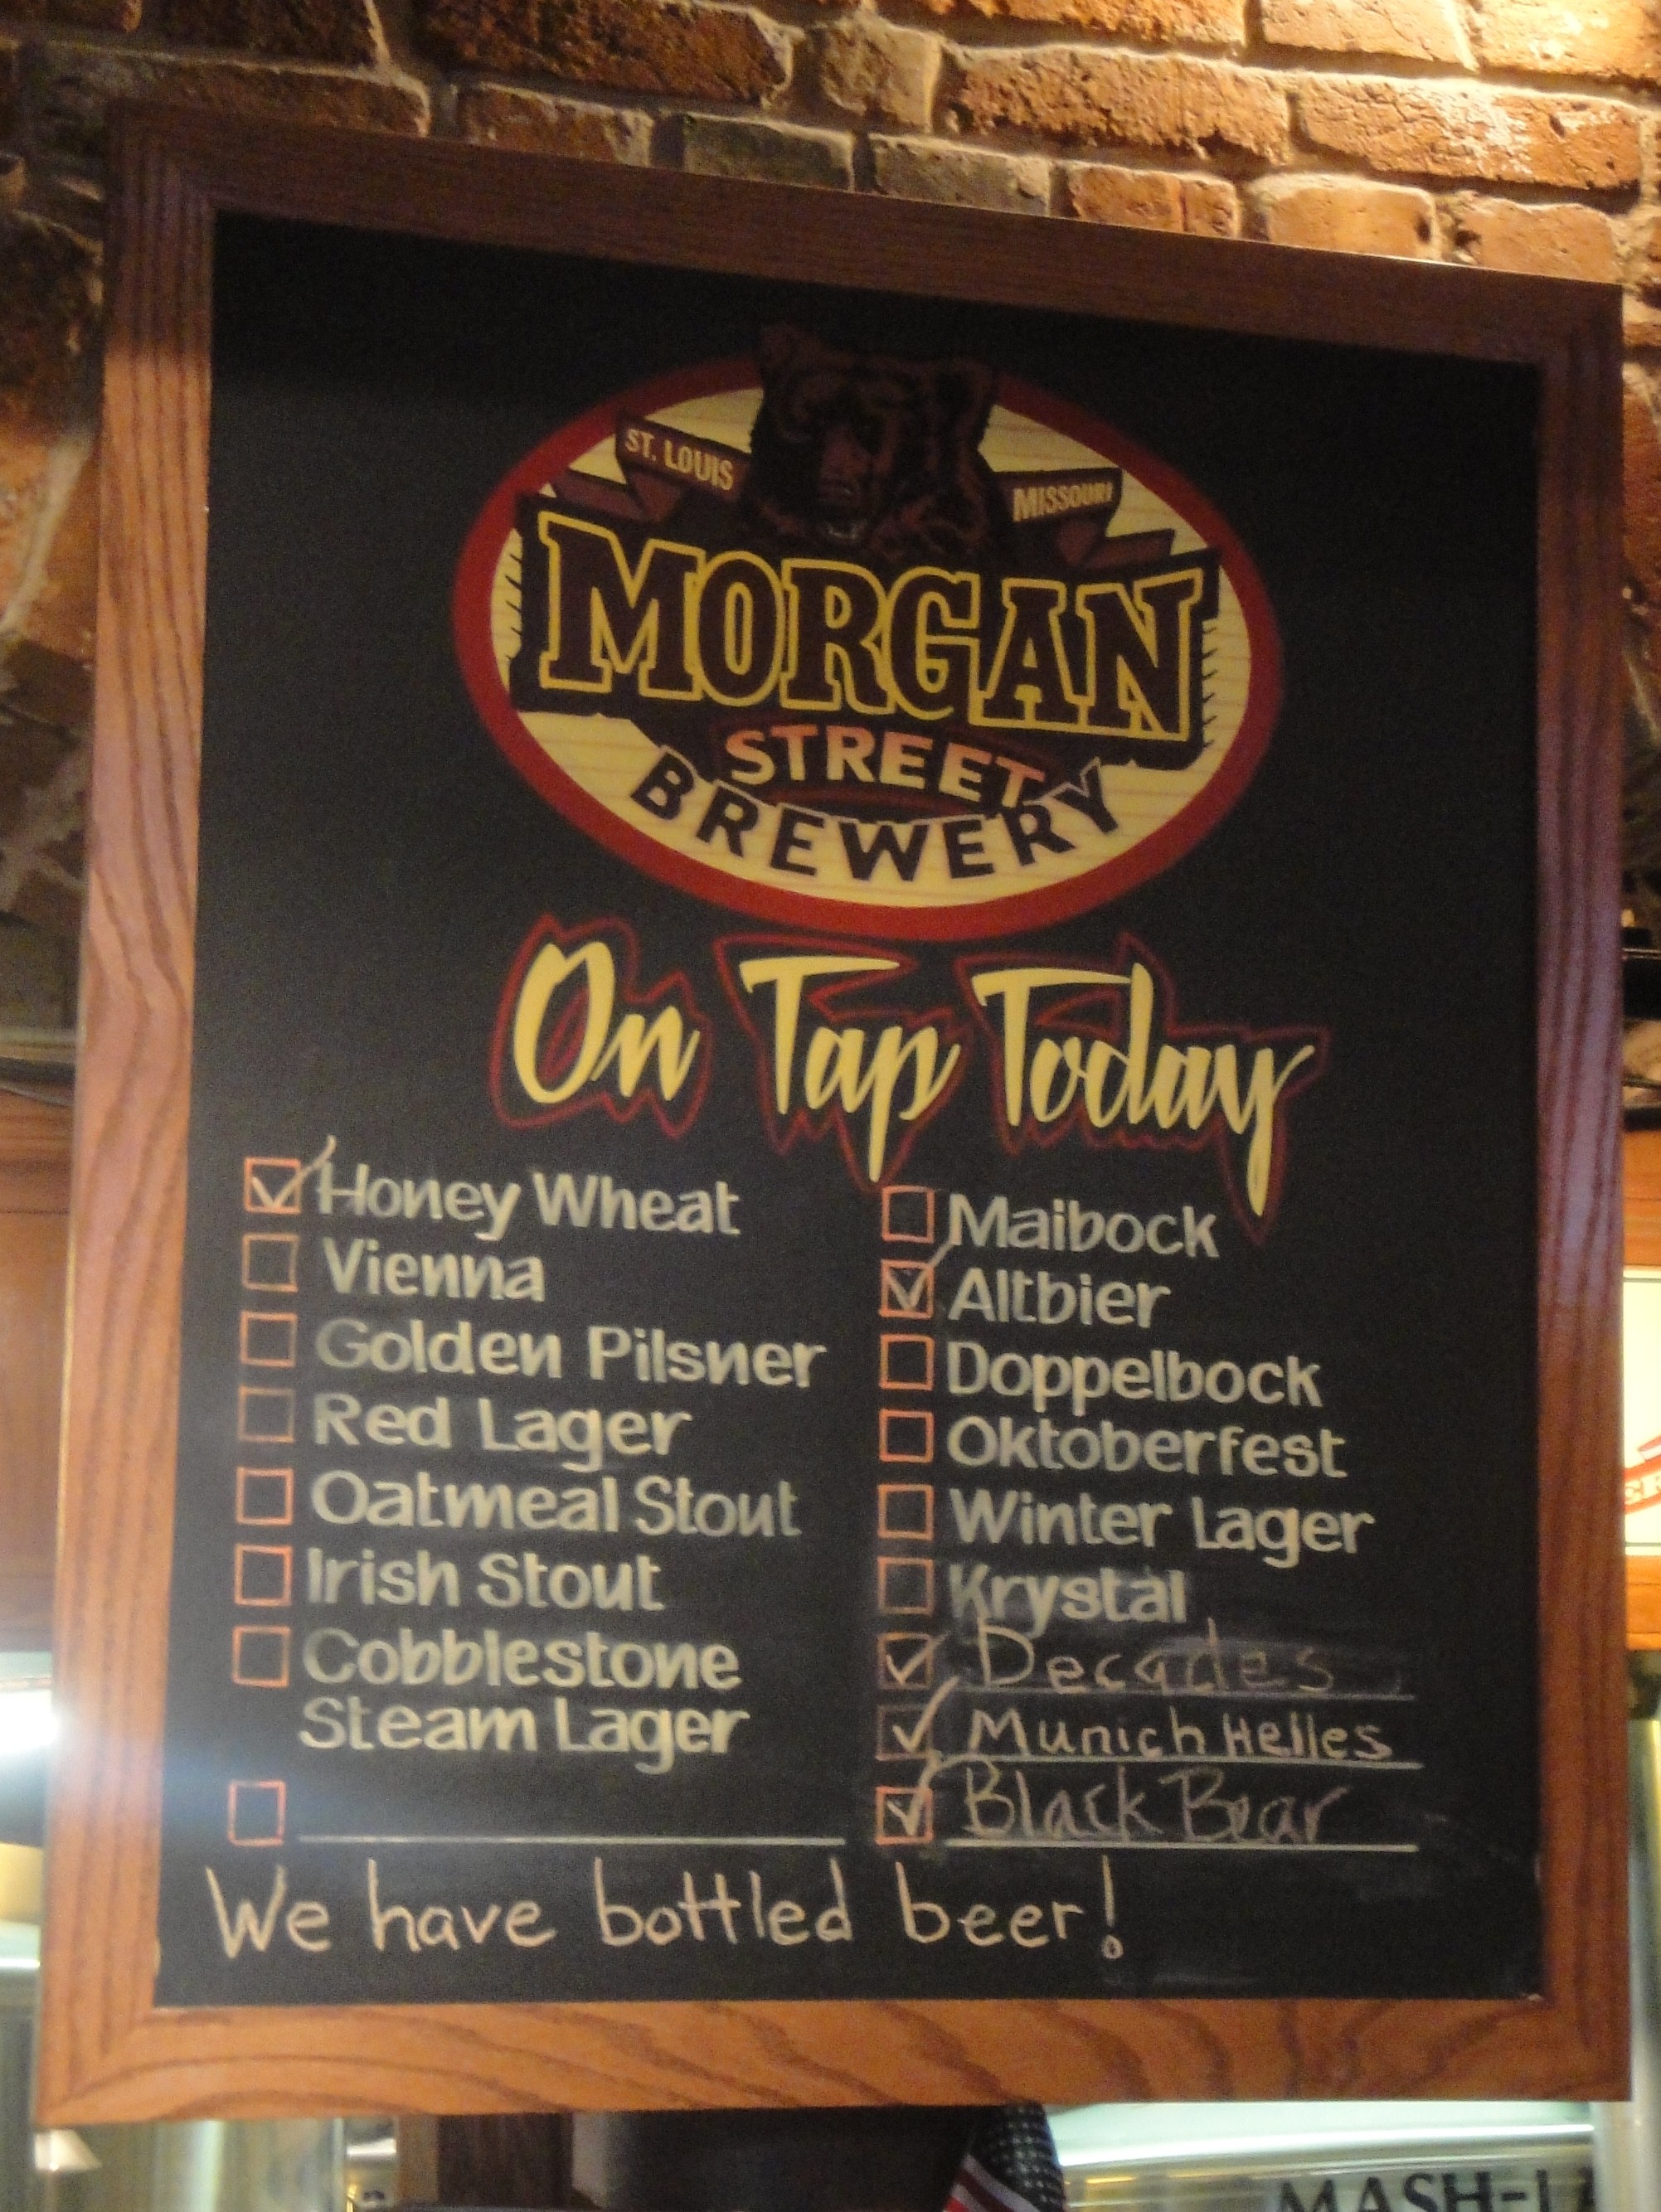 ST. LOUIS
MISSOURI
MORGAN
STREET
BREWERY
On Tap Today
Honey Wheat
Vienna
Golden Pilsner
Red Lager
Oatmeal Stout
Irish Stout
Cobblestone
Steam Lager
Maibock
Altbier
Doppelbock
Oktoberfest
Winter Lager
Krystal
Decades
Munich Helles
Black Bear
We have bottled beer!